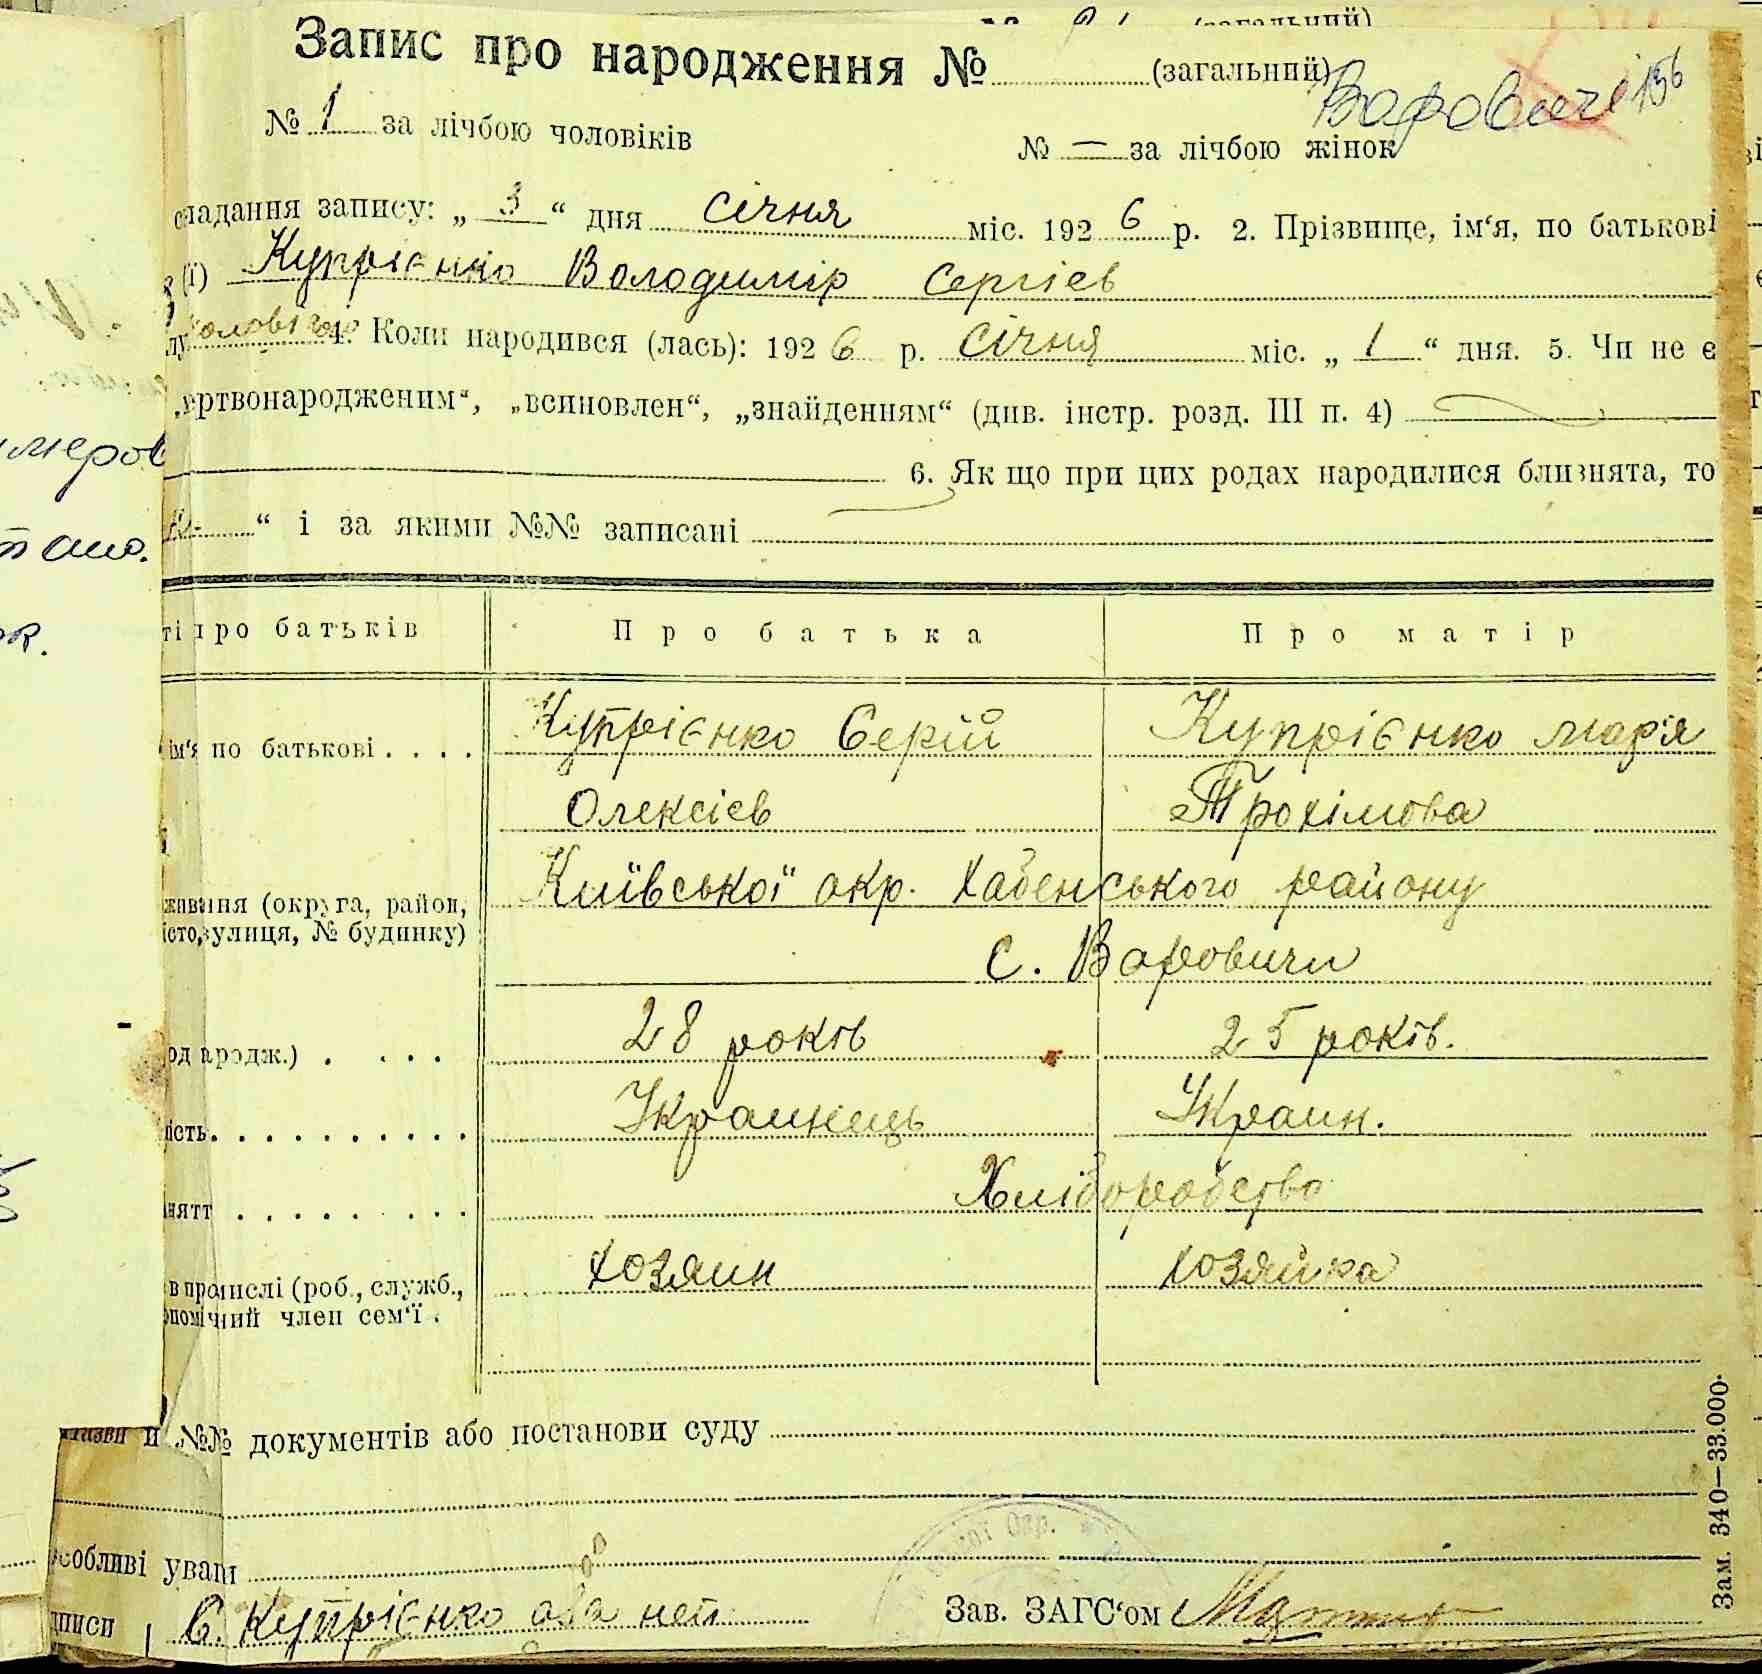 (загальний)
Запис про народження № (загальний)
Варовичі 156
№ 1 за лічбою чоловіків № — за лічбою жінок
складання запису: „ 3 “ дня січня міс. 192 6 р. 2. Прізвище, ім‘я, по батькові
(ї) Купрієнко Володимір Сергієв
4. Коли народився (лась): 192 6 р. січня міс. „ 1 “ дня. 5. Чи не є
„мертвонародженим“, „всиновлен“, „знайденням“ (див. інстр. розд. III п. 4)
6. Як що при цих родах народилися близнята, то
“ і за якими №№ записані
ті про батьків Про батька Про матір
ім‘я по батькові . . . . Купрієнко Серій Купрієнко Мар'я
Олексієв Трохімова
живання (округа, район, Київської окр. Хабенського району
істо, вулиця, № будинку)
с. Варовичи
од народж.) . . . . 28 років 25 років.
ність . . . . . . . . . . . Украинець Украин.
няття . . . . . . . . Хліборобство
в промислі (роб., служб., хозяин хозяйка
помічний член сем‘ї .
Назви и №№ документів або постанови суду
Особливі уваги
дписи С. Купрієнко Зав. ЗАГС‘ом
Зам. 340—33.000.